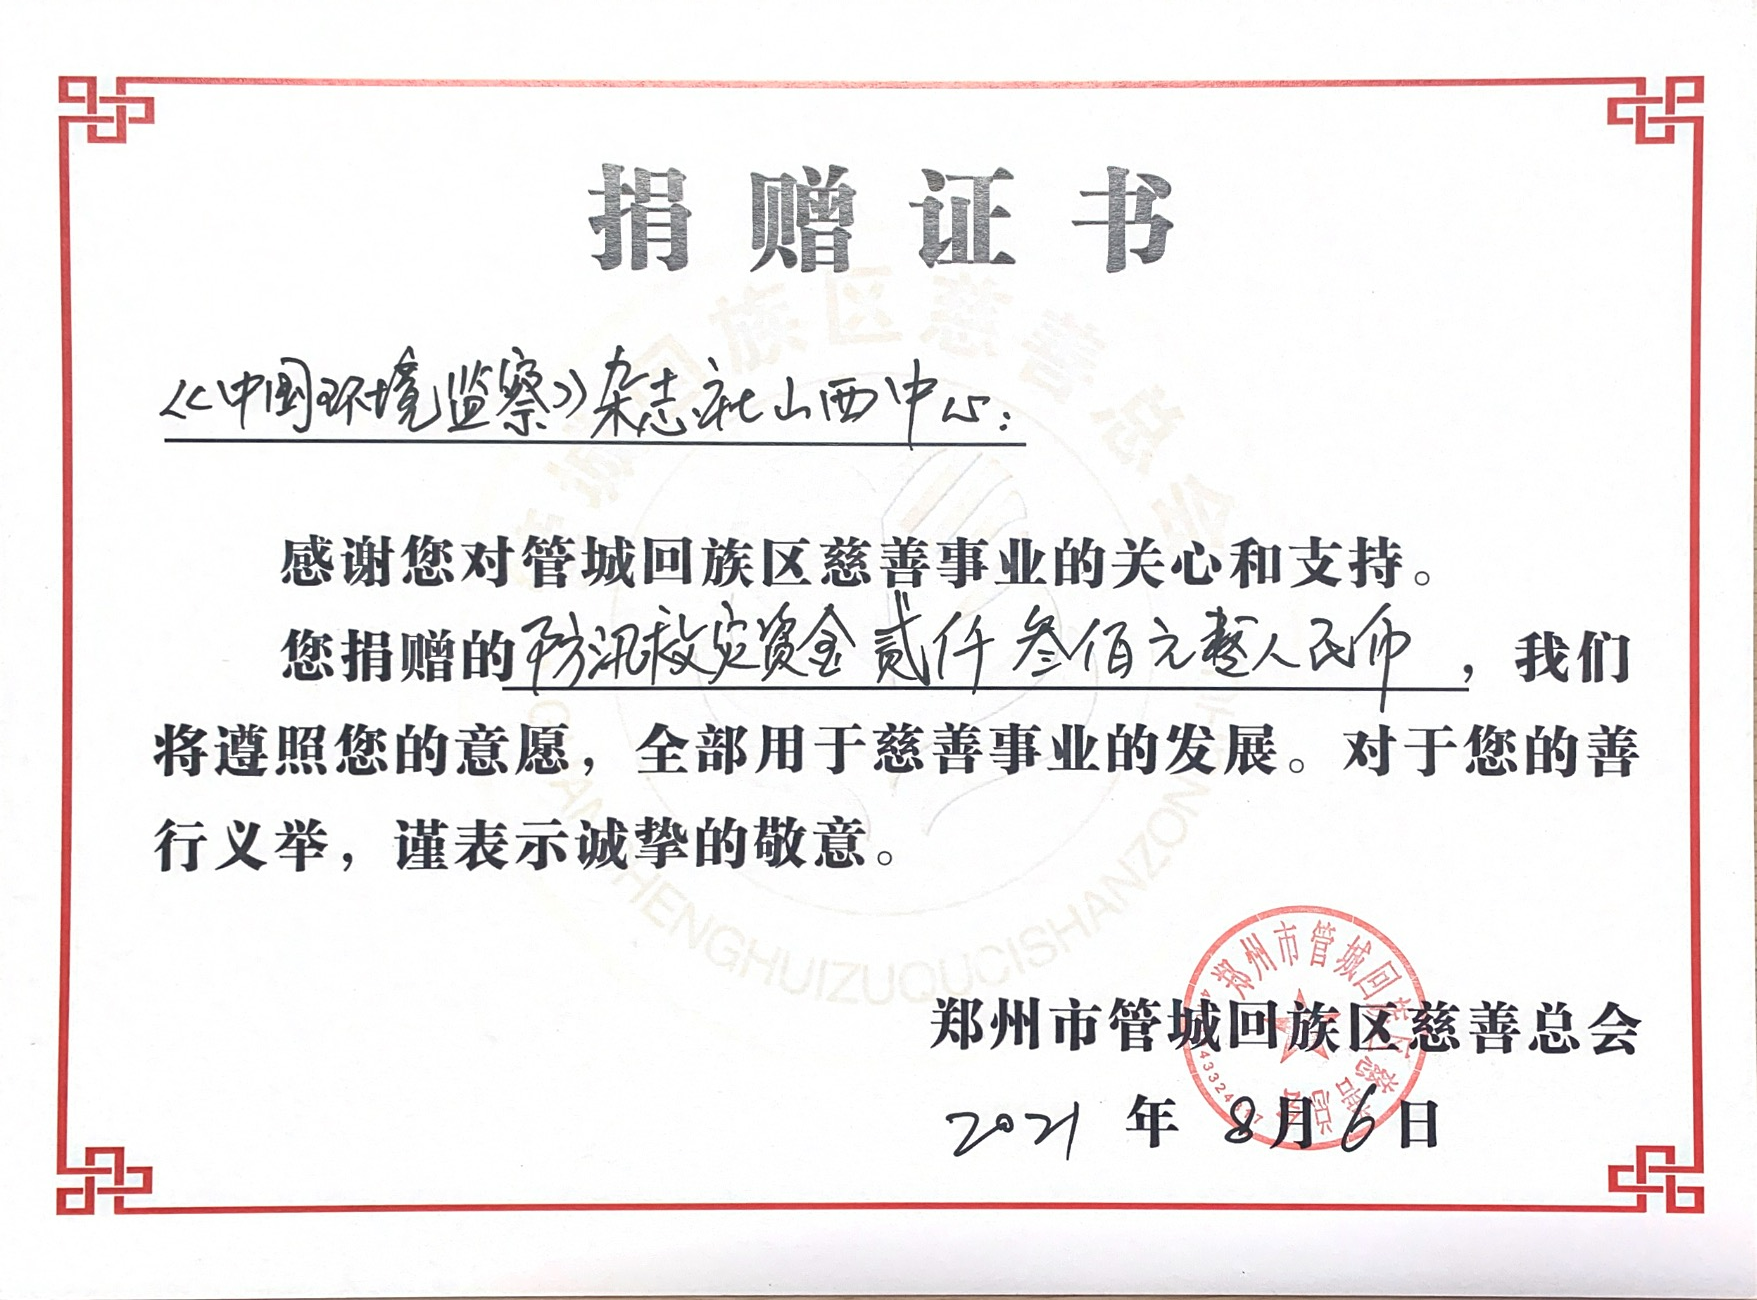 捐赠证书
《中国环境监察》杂志社山西中心:
感谢您对管城回族区慈善事业的关心和支持。
您捐赠的防汛救灾资金贰仟叁佰元整人民币,我们
将遵照您的意愿,全部用于慈善事业的发展。对于您的善
行义举,谨表示诚挚的敬意。
郑州市管城回族区慈善总会
2021年8月6日
郑州市管城回族区慈善总会
管城回族区慈善总会